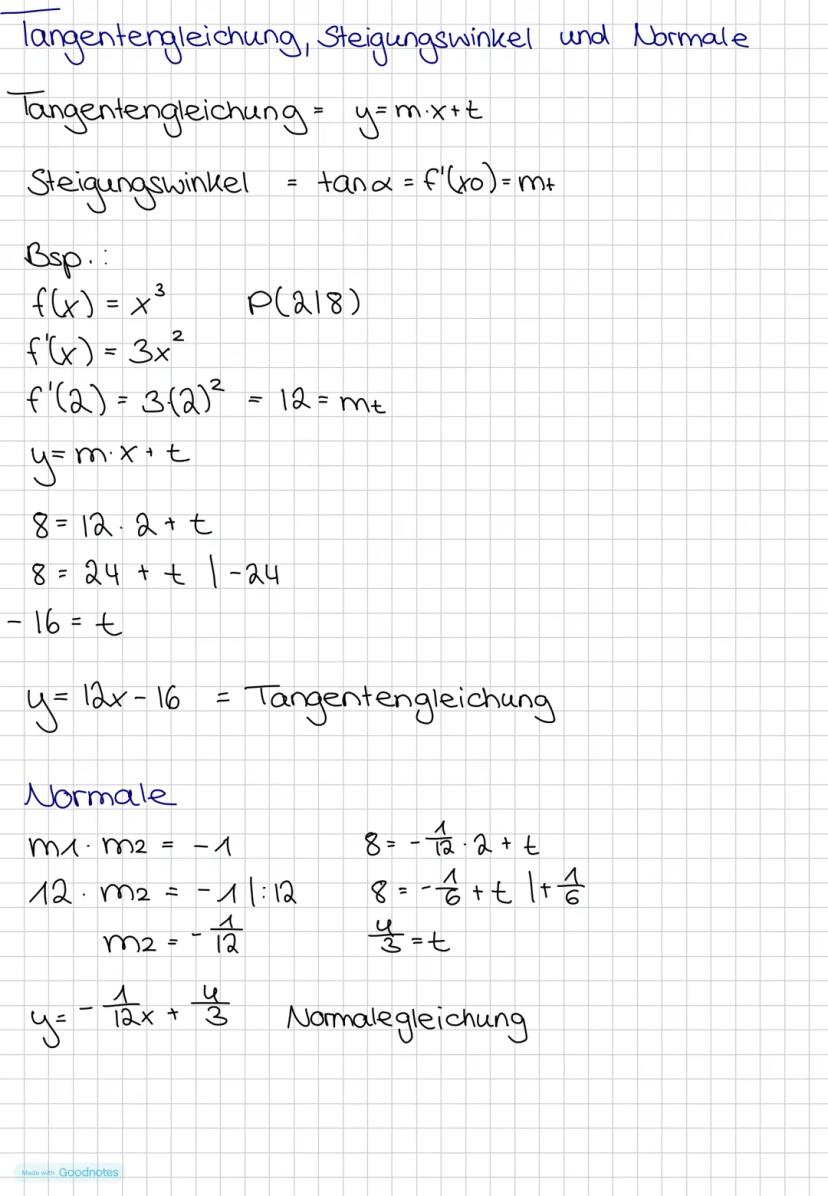 Tangentengleichung, Steigungswinkel und Normale
Tangentengleichung = y=m·x+t
Steigungswinkel = tanα = f'(x0) = mt
Bsp.:
f(x) = x³ P(2|8)
f'(x) = 3x²
f'(2) = 3(2)² = 12 = mt
y=m·x+t
8 = 12·2+t
8 = 24 + t |-24
-16 = t
y= 12x-16 = Tangentengleichung
Normale
m1·m2 = -1
12·m2 = -1 |:12
m2 = -1/12
8 = -1/12·2+t
8 = -1/6+t |+1/6
4/3 = t
y= -1/12x + 4/3 Normalegleichung
Made with Goodnotes